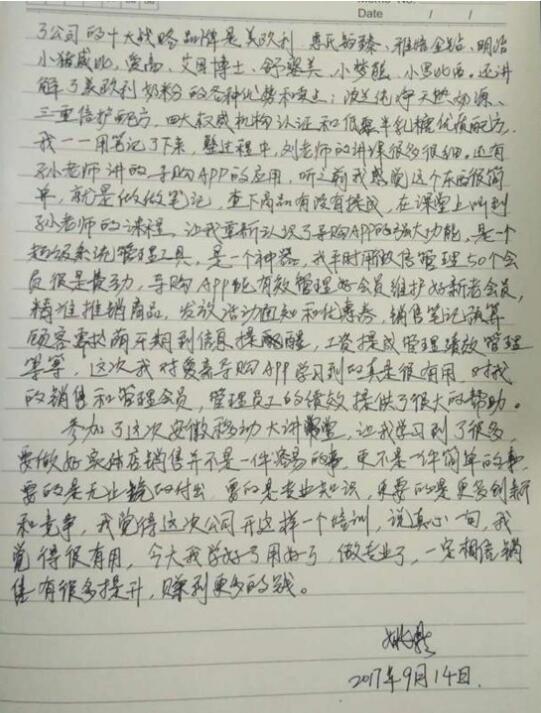 Date / /
了公司的十大战略品牌是美欧利、惠氏铂臻、雅培金钻、明治
小猪威比、爱高、艾贝博士、舒婴美、小梦熊、小罗比。还讲
解了美欧利奶粉的各种优势和卖点：波兰纯净天然奶源、
三重倍护配方、四大权威机构认证和低聚半乳糖优质配方，
我一一用笔记了下来，整过程中，刘老师的讲课很多很细。还有
孙老师讲的导购APP的应用，听之前我感觉这个东西很简
单，就是做做笔记，查下商品有没有提成，在课堂上听到
孙老师的课程，让我重新认识了导购APP的强大功能，是一个
超级系统管理工具，是一个神器。我平时用微信管理50个会
员很是费劲，导购APP能有效管理好会员维护好新老会员，
精准推销商品，发送活动通知和优惠券，销售笔记预算
顾客需求萌芽期到信息提醒，工资提成管理绩效管理
等等，这次我对爱亲导购APP学习到的真是很有用，对我
的销售和管理会员，管理员工的绩效提供了很大的帮助。
参加了这次安徽移动大讲堂，让我学习到了很多，
要做好实体店销售并不是一件容易的事，更不是一件简单的事，
要的是无止境的付出，要的是专业知识，更要的是更多创新
和竞争，我觉得这次公司开这样一个培训，说真心一句，我
觉得很有用，今天我学好了用好了，做专业了，一定相信销
售有很多提升，赚到更多的钱。
2017年9月14日.